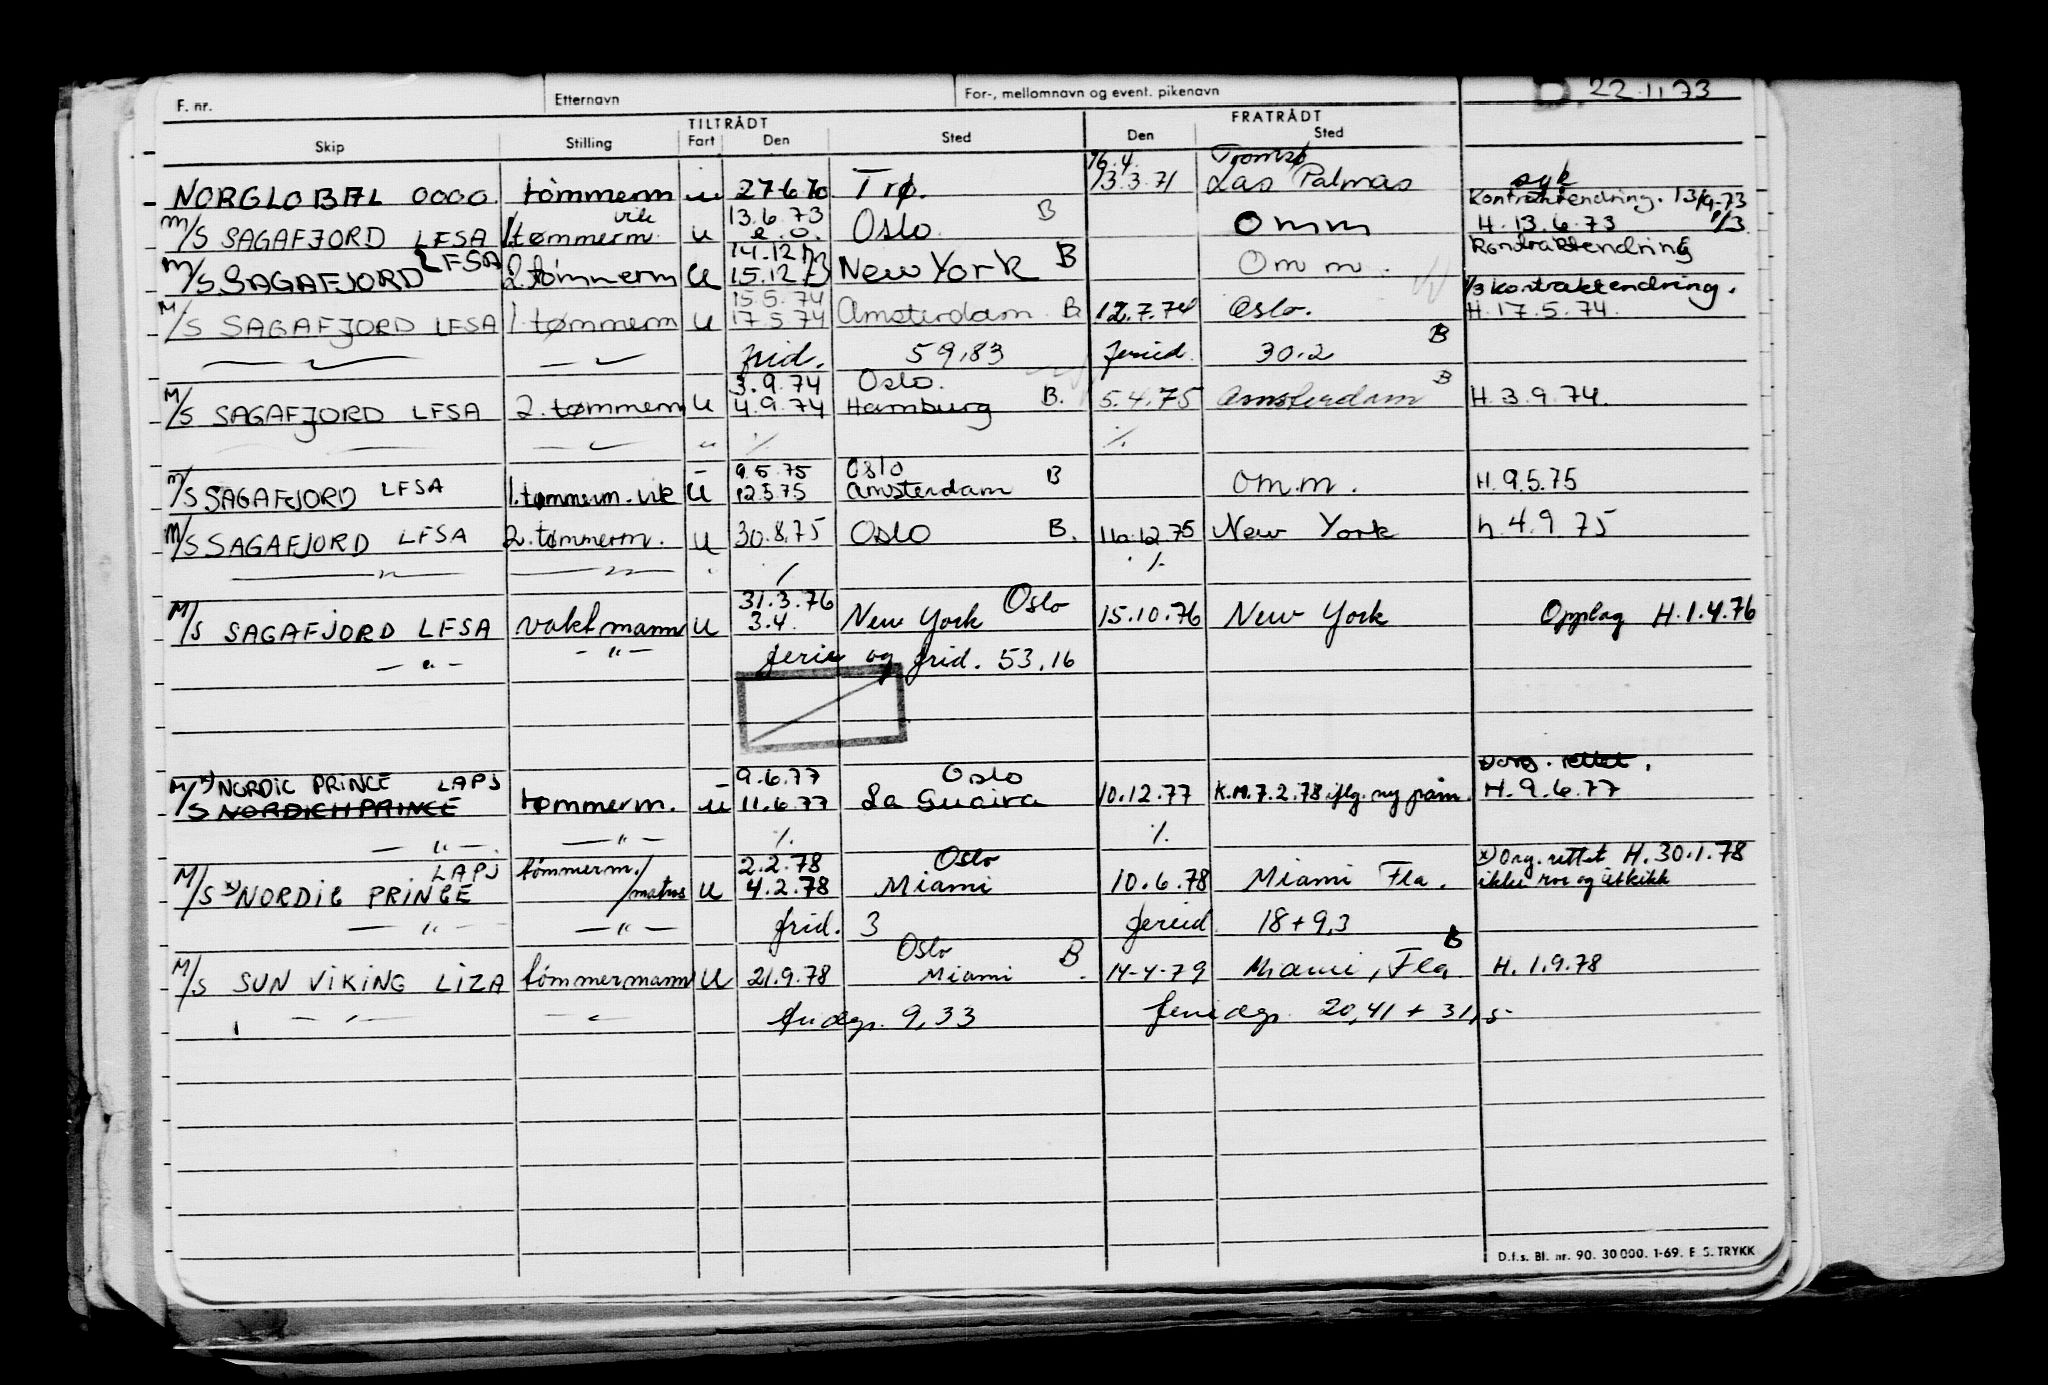 22.11.73
F. nr. Etternavn For-, mellomnavn og event. pikenavn
TILTRÅDT FRATRÅDT
Skip Stilling Fart Den Sted Den Sted
16.4. Tromsø
NORGLOBAL OOOO tømmerm u 27.6.70 Trø. 13.3.71 Las Palmas syk
vik 13.6.73 B Kontraktendring. 13/9-73
M/S SAGAFJORD LFSA 1.tømmerm. u e.o. Oslo Omm H. 13.6.73
14.12.73 Kontraktendring
M/S SAGAFJORD LFSA 2.tømmerm u 15.12.73 New York B Omm.
15.5.74 kontraktendring.
M/S SAGAFJORD LFSA 1.tømmerm u 17.5.74 Amsterdam B 12.7.74 Oslo. H. 17.5.74.
frid. 59,83 feried. 30.2 B
3.9.74 Oslo. B
M/S SAGAFJORD LFSA 2.tømmerm u 4.9.74 Hamburg B. 5.4.75 Amsterdam H. 3.9.74.
" %. %.
9.5.75 Oslo
M/S SAGAFJORD LFSA 1.tømmerm.vik u 12.5.75 Amsterdam B om.m. H. 9.5.75
M/S SAGAFJORD LFSA 2.tømmerm. u 30.8.75 Oslo B. 12.75 New York h. 4.9.75
— " — — " — " % %
31.3.76 Oslo
M/S SAGAFJORD LFSA vaktmann u 3.4. New York 15.10.76 New York Opplag H. 1.4.76
— " — — " — ferie og frid. 53,16
x) NORDIC PRINCE LAPJ 9.6.77 Oslo Org. rettet.
M/S NORDICH PRINCE tømmerm. u 11.6.77 La Guaira 10.12.77 K.M. 7.2.78 iflg. ny påm. H. 9.6.77
— " — — " — %. %.
LAPJ tømmerm./ 2.2.78 Oslo x) Org. rettet H. 30.1.78
M/S x) NORDIC PRINCE matros u 4.2.78 Miami 10.6.78 Miami Fla. ikke ror og utkikk
— " — — " — frid. 3 feried 18+9,3
Oslo B B
M/S SUN VIKING LIZA tømmermann u 21.9.78 Miami 14-4-79 Miami, Fla H. 1.9.78
— " — — " — fridgr. 9,33 feriedgr. 20,41 + 31,5
D.f.s. Bl. nr. 90. 30 000. 1-69. E. S. TRYKK